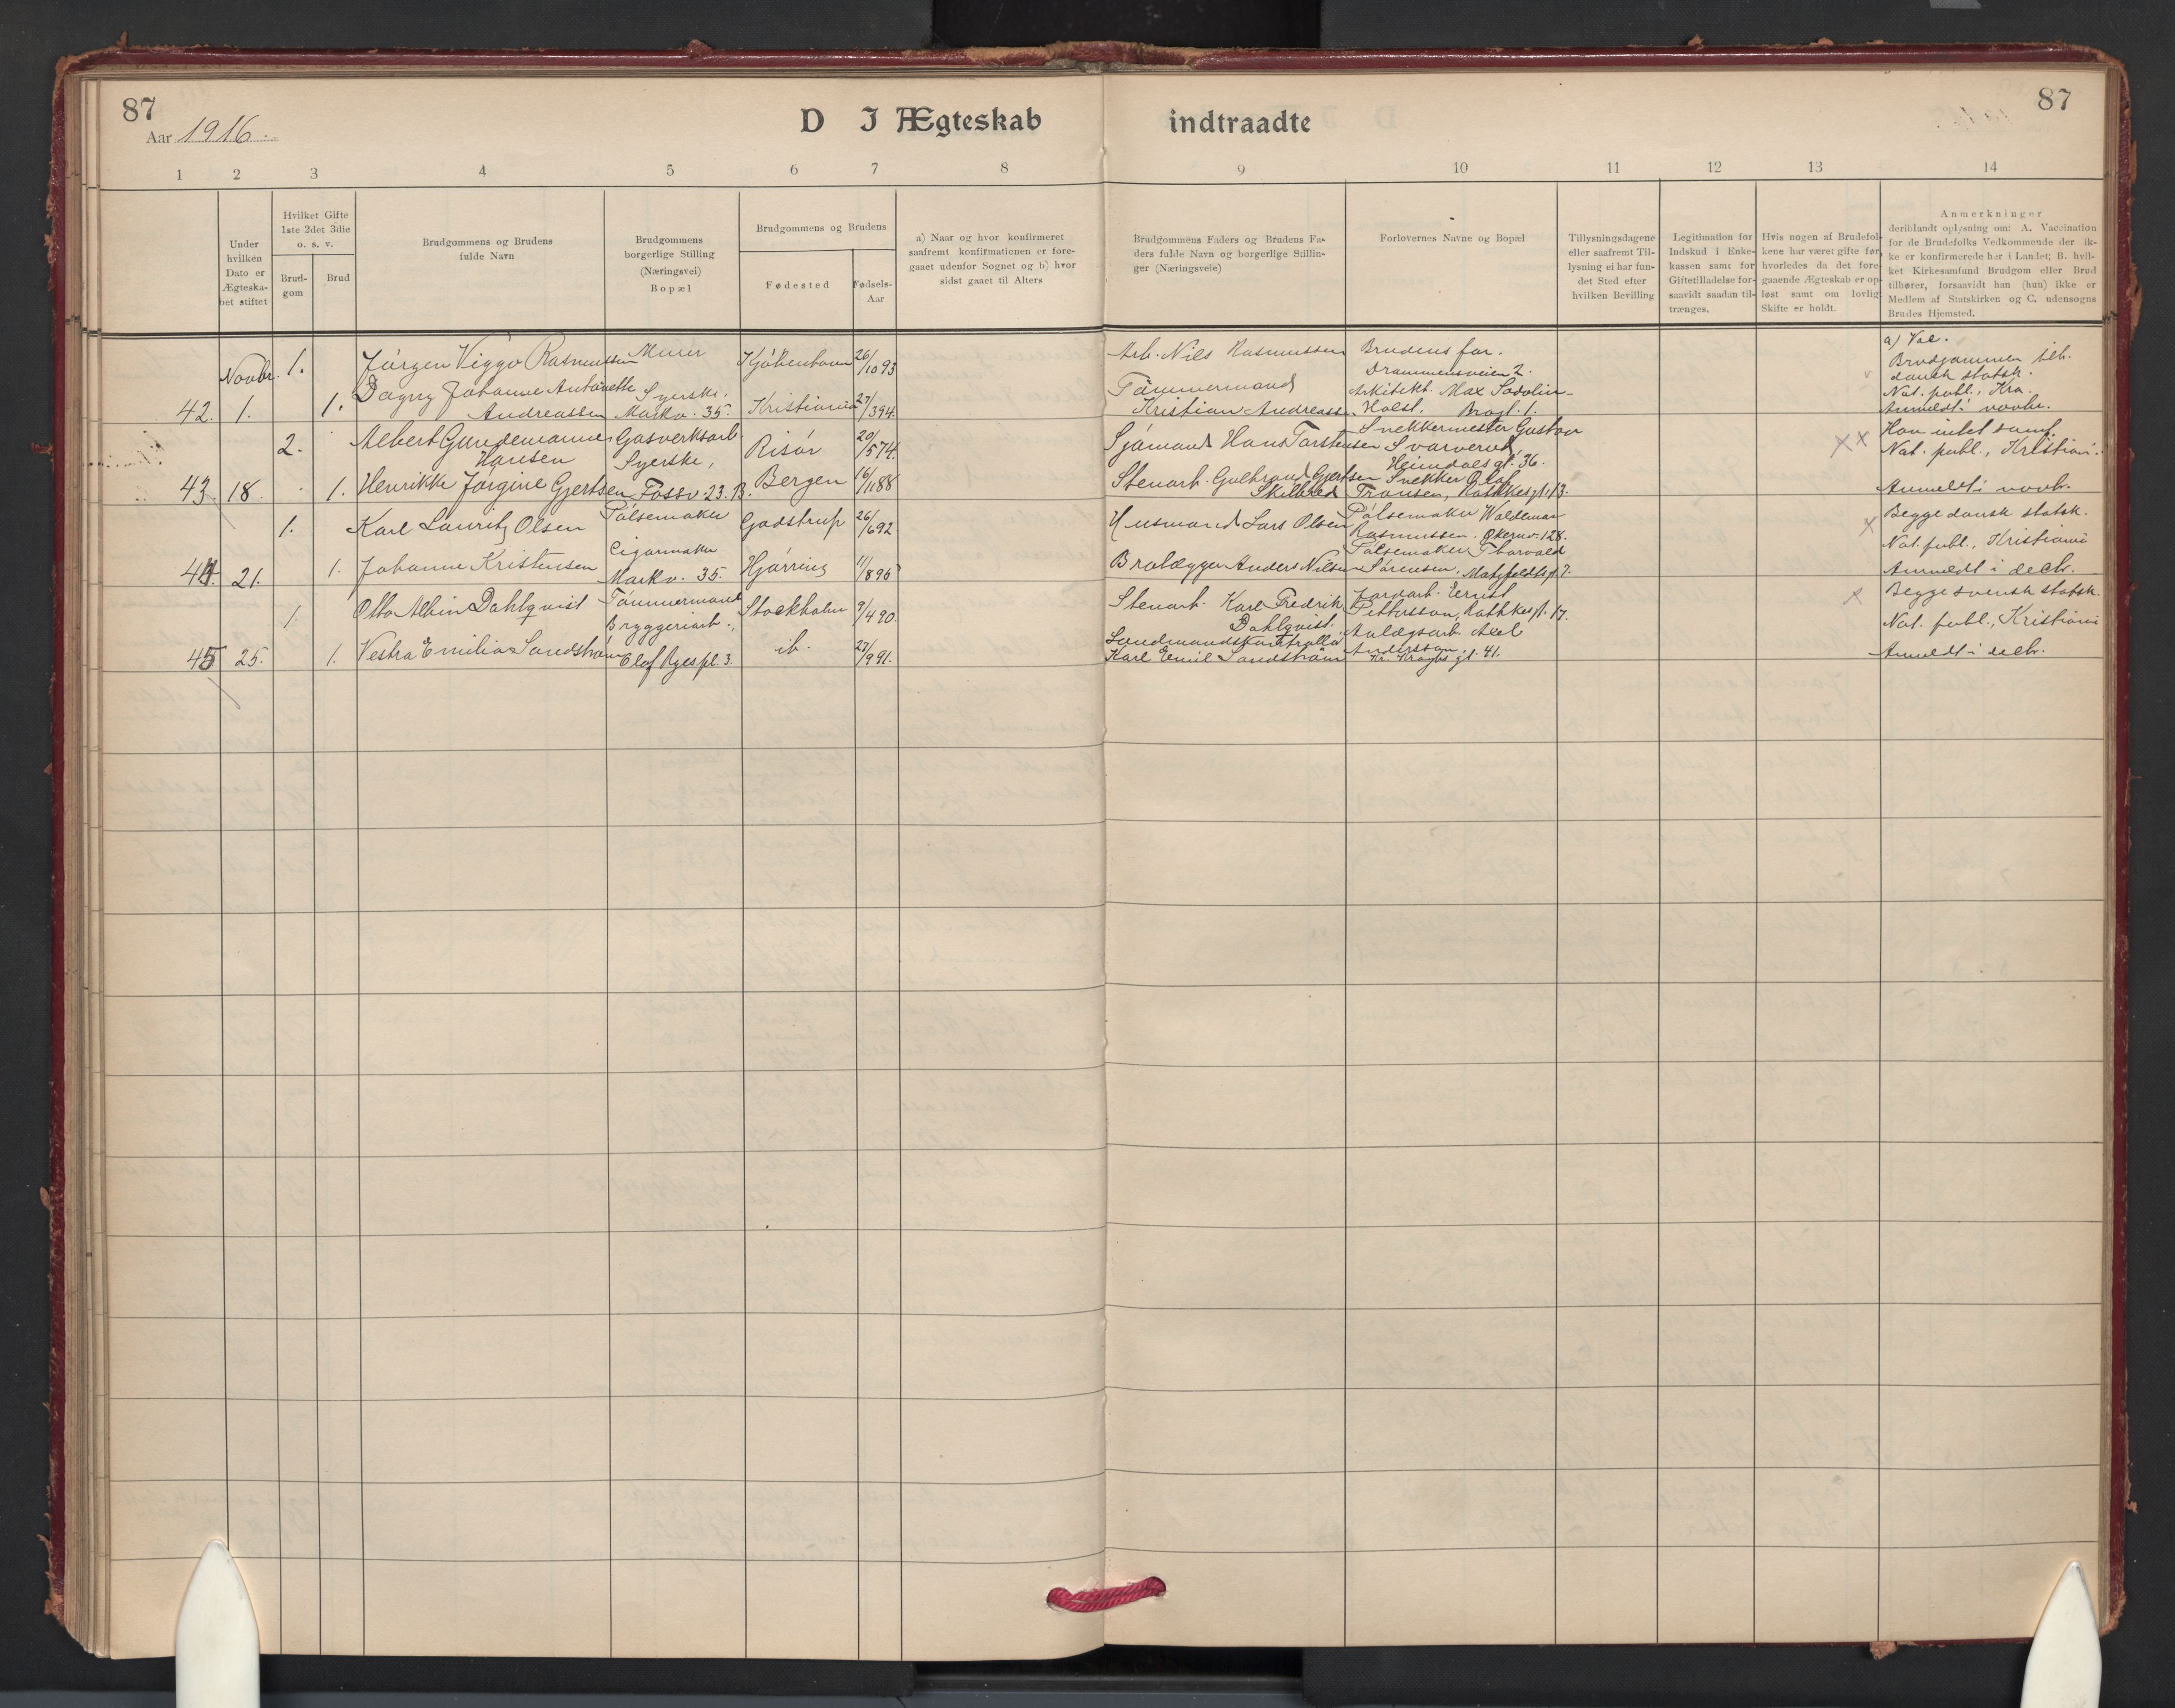 87
Aar 1916.
D I Ægteskab indtraadte
87
1 2 3 4 5 6 7 8 9 10 11 12 13 14
Under
hvilken
Dato er
Ægteska-
bet stiftet
Hvilket Gifte
1ste 2det 3die
o. s. v.
Brud-
gom
Brud
Brudgommens og Brudens
fulde Navn
Brudgommens
borgerlige Stilling
(Næringsvei)
Bopæl
Brudgommens og Brudens
Fødested
Fødsels-
Aar
a) Naar og hvor konfirmeret
saafremt konfirmationen er fore-
gaaet udenfor Sognet og b) hvor
sidst gaaet til Alters
Brudgommens Faders og Brudens Fa-
ders fulde Navn og borgerlige Stillin-
ger (Næringsveie)
Forlovernes Navne og Bopæl
Tillysningsdagene
eller saafremt Til-
lysning ei har fun-
det Sted efter
hvilken Bevilling
Legitimation for
Indskud i Enke-
kassen samt for
Giftetilladelse for-
saavidt saadan til-
trænges.
Hvis nogen af Brudefol-
kene har været gifte før,
hvorledes da det fore-
gaaende Ægteskab er op-
løst samt om lovlig
Skifte er holdt.
Anmerkninger
deriblandt oplysning om: A. Vaccination
for de Brudefolks Vedkommende der ik-
ke er konfirmerede her i Landet; B. hvil-
ket Kirkesamfund Brudgom eller Brud
tilhører, forsaavidt han (hun) ikke er
Medlem af Statskirken og C. udensogns
Brudes Hjemsted.
Novbr. 1. Jörgen Viggo Rasmussen Murer Kjöbenhavn 26/10 93
Arb. Nils Rasmussen Brudens far.
Drammensveien 2.
a) Vac.
Brudgommen
dansk statsk.
42. 1. 1. Dagny Johanne Antonette
Andreassen
Syerske,
Markv. 35. Kristiania 27/3 94.
Tömmermand
Kristian Andreassen
Arkitekt. Max Sadolin-
Holst. Brogt. 1.
Not. publ., Kra.
Anmeldt i novbr.
2. Albert Gundemannes
Hansen
Gasverksarb. Risör 20/5 74.
Sjömand Hans Torstensen
Snekkermester Gustav
Svarverud,
Heimdalsgt. 36.
Han intet samf.
Not. publ., Kristiania.
43. 18. 1. Henrikke Jorgine Gjertsen
Syerske,
Fossv. 23. B. Bergen 16/11 88
Stenarb. Gulbrand Gjertsen
Skilbred
Snekker Olaf
Fransen, Rathkesgt. 13.
Anmeldt i novb.
1. Karl Lauritz Olsen Pölsemaker Gadstrup 26/6 92
Husmand Lars Olsen
Pölsemaker Waldemar
Rasmussen. Økernv. 128.
Begge dansk statsk.
Not. publ., Kristiania
44. 21. 1. Johanne Kristensen Cigarmaker
Markv. 35. Hjörring 11/8 96
Brolægger Anders Nilsen
Pölsemaker Thorvald
Sörensen, Motzfeldtsgt. 7.
Anmeldt i decb.
1. Otto Albin Dahlqvist Tömmermand Stockholm 9/4 90.
Stenarb. Karl Fredrik
Dahlqvist.
Jordarb. Ernst
Pettersson, Rathkesgt. 17.
Begge svensk statsk.
Not. publ., Kristiania
45 25. 1. Vestra Emilia Sandström Bryggeriarb.,
Olaf Ryes pl. 3. ib. 27/9 91.
Karl Emil Sandström
Anlægsarb. Axel
Andersson.
Kr. Kroghs gt. 41.
Anmeldt i decb.